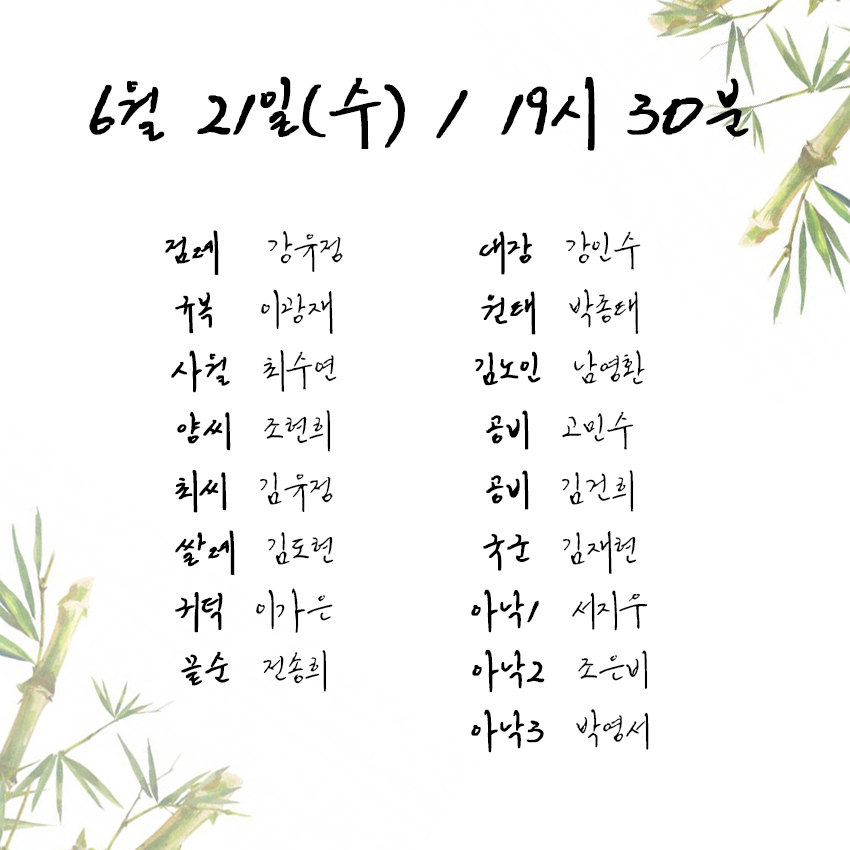 6월 21일(수) / 19시 30분
점례 강유정
규복 이광재
사월 최수연
양씨 조현희
최씨 김유정
쌀례 김도현
귀덕 이가은
끝순 전송희
대장 강인수
원태 박종태
김노인 남영환
공비 고민수
공비 김건희
국군 김재현
아낙1 서지우
아낙2 조은비
아낙3 박영서